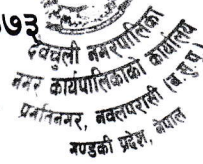 ०७३
देवचुली नगरपालिका
नगर कार्यपालिकाको कार्यालय
प्रगतिनगर, नवलपरासी (ब.सु.पू.)
गण्डकी प्रदेश, नेपाल